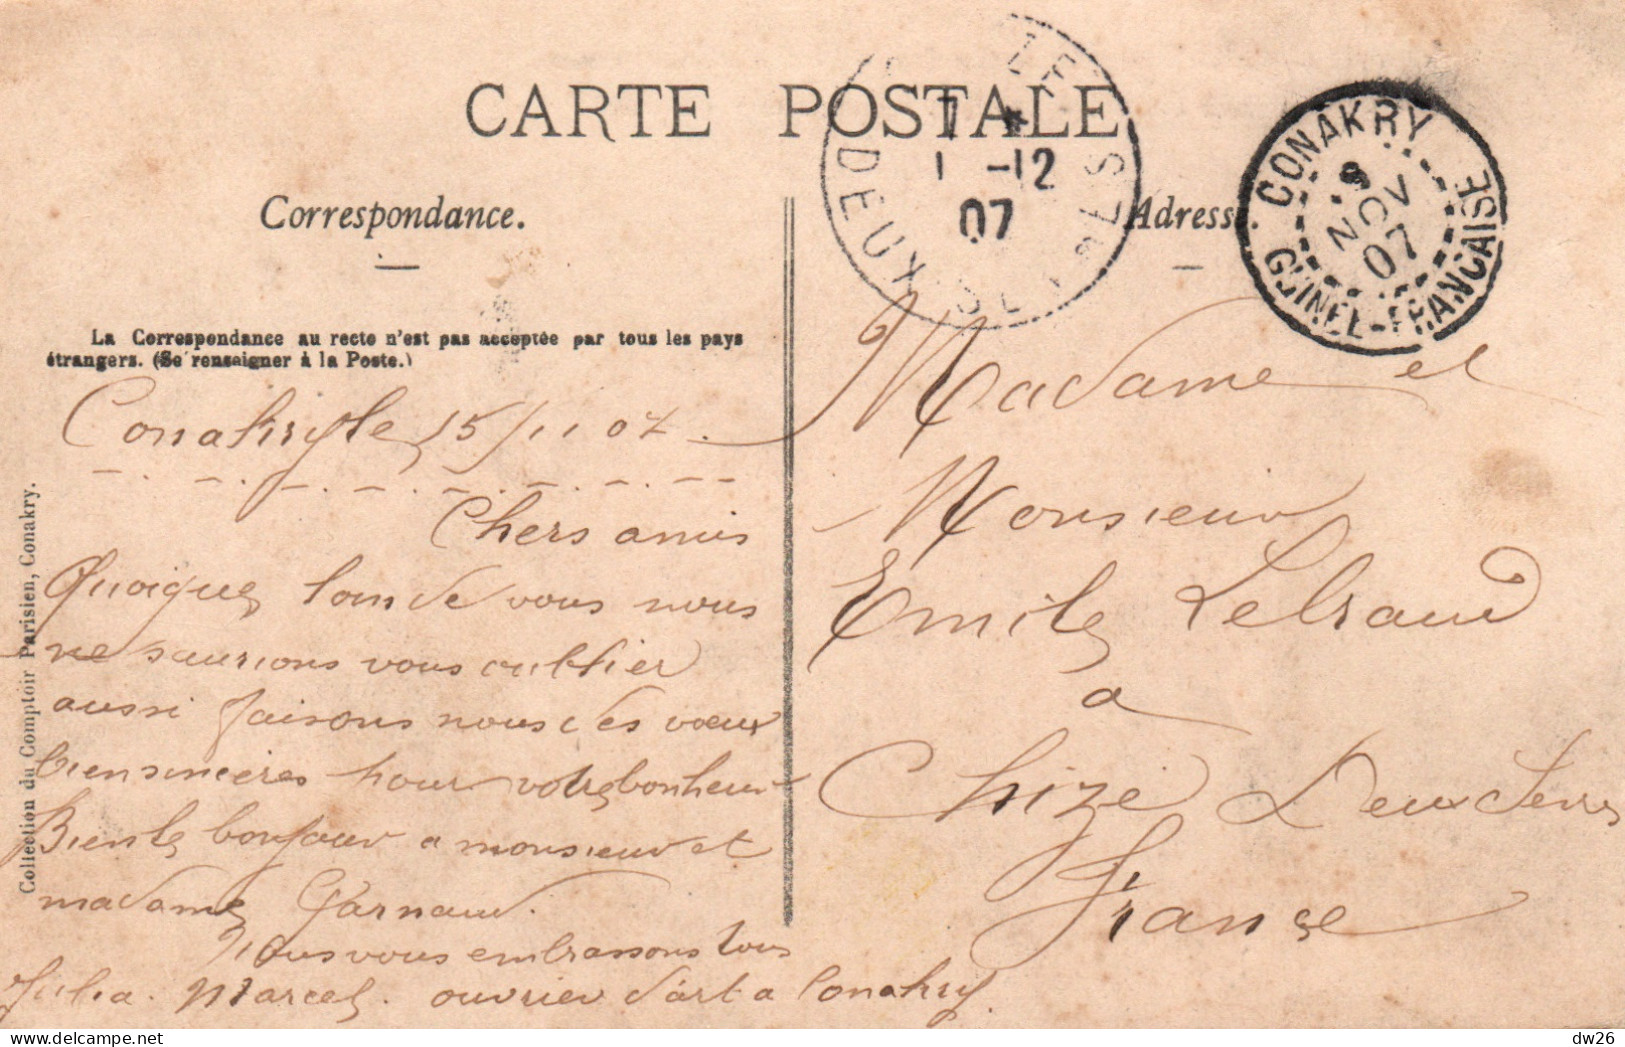 CARTE POSTALE
Correspondance.
Adresse.
La Correspondance au recto n'est pas acceptée par tous les pays
étrangers. (Se renseigner à la Poste.)
Conakry le 15/11 07.
Chers amis
Quoique loin de vous nous
ne saurions vous oublier
aussi faisons nous des vœux
bien sincères pour votre bonheur
Bien le bonjour a monsieur et
madame Garnaud.
Nous vous embrassons tous
Julia. Marcel. ouvrier d'art a Conakry.
Madame et
Monsieur
Emile Lebraud
a
Chizé Deux Sevres
France
Collection du Comptoir Parisien, Conakry.
1 -12
07
DEUX-SEVRES
CONAKRY
NOV
07
GUINEE-FRANCAISE
delcampe.net
dw26